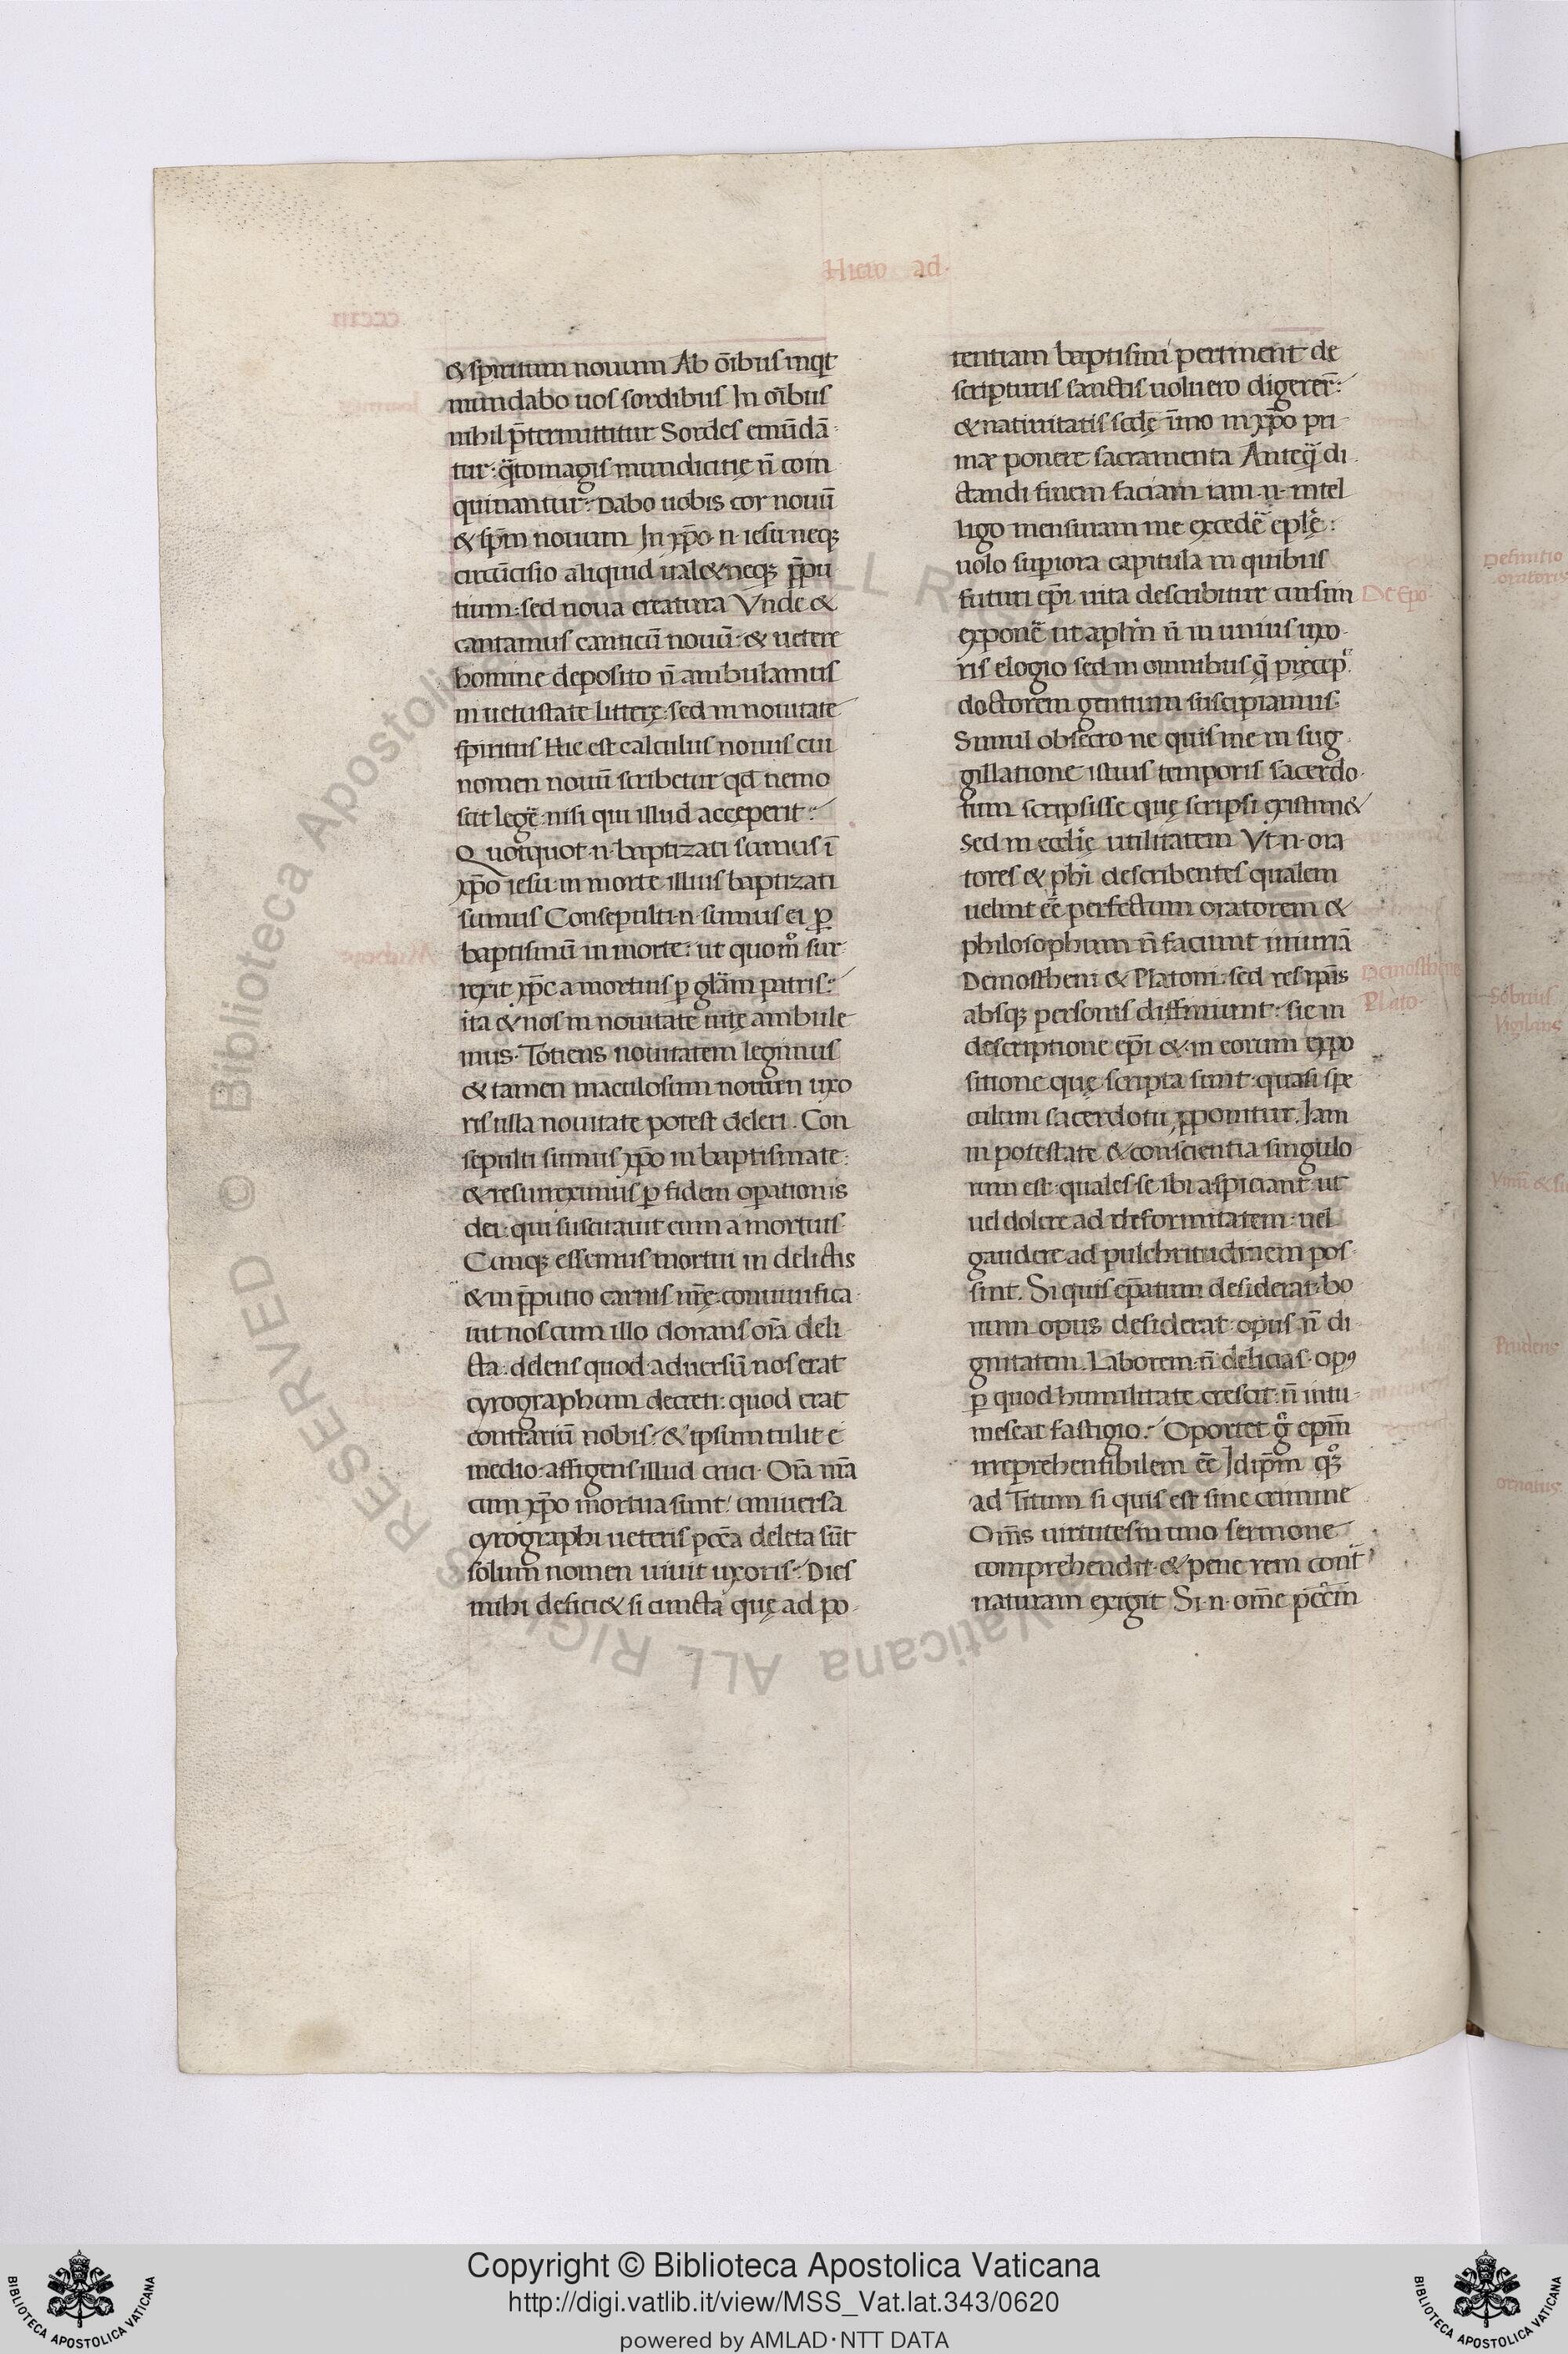 Hiero ad.
& spiritum nouum Ab oı̄bus inqt
mundabo uos sordibus In oı̄bus
nihil p̄termittitur Sordes emūdā
tur: q̄tomagis mundicitię n̄ coin
quinantur: Dabo uobis cor nouū
& sp̄m nouum In xp̄o .n. iesu neq;
circūcisio aliquid ual& neq; p̄pu
tium: sed noua creatura Vnde &
cantamus canticū nouū: & uetere
homine deposito n̄ ambulamus
in uetustate litterę: sed in nouitate
spiritus Hic est calculus nouus cui
nomen nouū scribetur qd nemo
scit legē nisi qui illud acceperit:
Quotquot .n. baptizati sumus ī
xp̄o iesu in morte illius baptizati
sumus Consepulti .n. sumus ei ꝑ
baptismū in morte: ut quomº sur
rexit xp̄c a mortuis ꝑ glām patris:
ita & nos in nouitate uitę ambule
mus. Totiens nouitatem legimus
& tamen maculosum nomen uxo
ris ulla nouitate potest deleri. Con
sepulti sumus xp̄o in baptismate:
& resurreximus ꝑ fidem oꝑationis
dei: qui suscitauit eum a mortuis
Cumq; essemus mortui in delictis
& in p̄putio carnis nr̄ę conuiuifica
uit nos cum illo donans oı̄a deli
cta: delens quod aduersū nos erat
cyrographum decreti: quod erat
contrariū nobis: & ipsum tulit e
medio: affigens illud cruci. Oı̄a nr̄a
cum xp̄o mortua sunt: uniuersa
cyrographi ueteris pccā deleta sūt
solum nomen uiuit uxoris: Dies
mihi defici& si cuncta quę ad po
tentiam baptismi pertinent de
scripturis sanctis uoluero digerer̄:
& natiuitatis scdę īmo in xp̄o pri
mæ ponere sacramenta Anteq̄ di
ctandi finem faciam iam .n. intel
ligo mensuram me excedē epłę:
uolo superiora capitula in quibus
futuri ep̄i uita describitur cursim
De Ep̄o
exponē ut aplm̄ n̄ in unius uxo
ris elogio sed in omnibus q̄ pręcepº
doctorem gentium suscipiamus
Simul obsecro ne quis me in sug
gillatione istius temporis sacerdo
tum scripsisse quę scripsi existim&
Sed in eccłię utilitatem Vt .n. ora
tores & phı̄ describentes qualem
uelint eē perfectum oratorem &
philosophum n̄ faciunt iniuriā
Demostheni & Platoni: sed res ip̄as
Demosthenes
Plato.
absq; personis diffiniunt: sic in
descriptione ep̄i & in eorum expo
sitione quę scripta sunt quasi spe
culum sacerdotii ꝓponitur. Iam
in potestate & conscientia singulo
rum est quales se ibi aspiciant ut
uel dolere ad deformitatem: uel
gaudere ad pulchritudinem pos
sint. Si quis ep̄atum desiderat bo
num opus desiderat opus n̄ di
gnitatem. Laborem n̄ delicias: opꝰ
ꝑ quod humilitate crescat n̄ intu
mescat fastigio: Oportet gº epm̄
irreprehensibilem eē Id ip̄m qº;
ad Titum si quis est sine crimine
Om̄s uirtutes in uno sermone
comprehendit & pene rem cont͛
naturam exigit Si .n. om̄e pccm̄
Definitio
oratoris
Sobrius
Vigilans
Prudens
ornatus
Copyright © Biblioteca Apostolica Vaticana
http://digi.vatlib.it/view/MSS_Vat.lat.343/0620
powered by AMLAD·NTT DATA
BIBLIOTECA APOSTOLICA VATICANA
BIBLIOTECA APOSTOLICA VATICANA
© Biblioteca Apostolica Vaticana ALL RIGHTS RESERVED